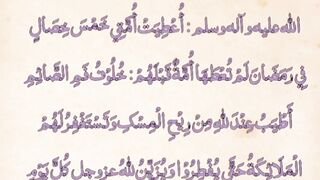 الله عليه وآله وسلم: أُعْطِيَتْ أُمَّتِي خَمْسَ خِصَالٍ
فِي رَمَضَانَ لَمْ تُعْطَهَا أُمَّةٌ قَبْلَهُمْ: خُلُوْفُ فَمِ الصَّائِمِ
أَطْيَبُ عِنْدَ اللهِ مِنْ رِيْحِ الْمِسْكِ وَتَسْتَغْفِرُ لَهُمُ
الْمَلَائِكَةُ حَتَّى يُفْطِرُوا وَيُزَيِّنُ اللهُ عز وجل كُلَّ يَوْمٍ